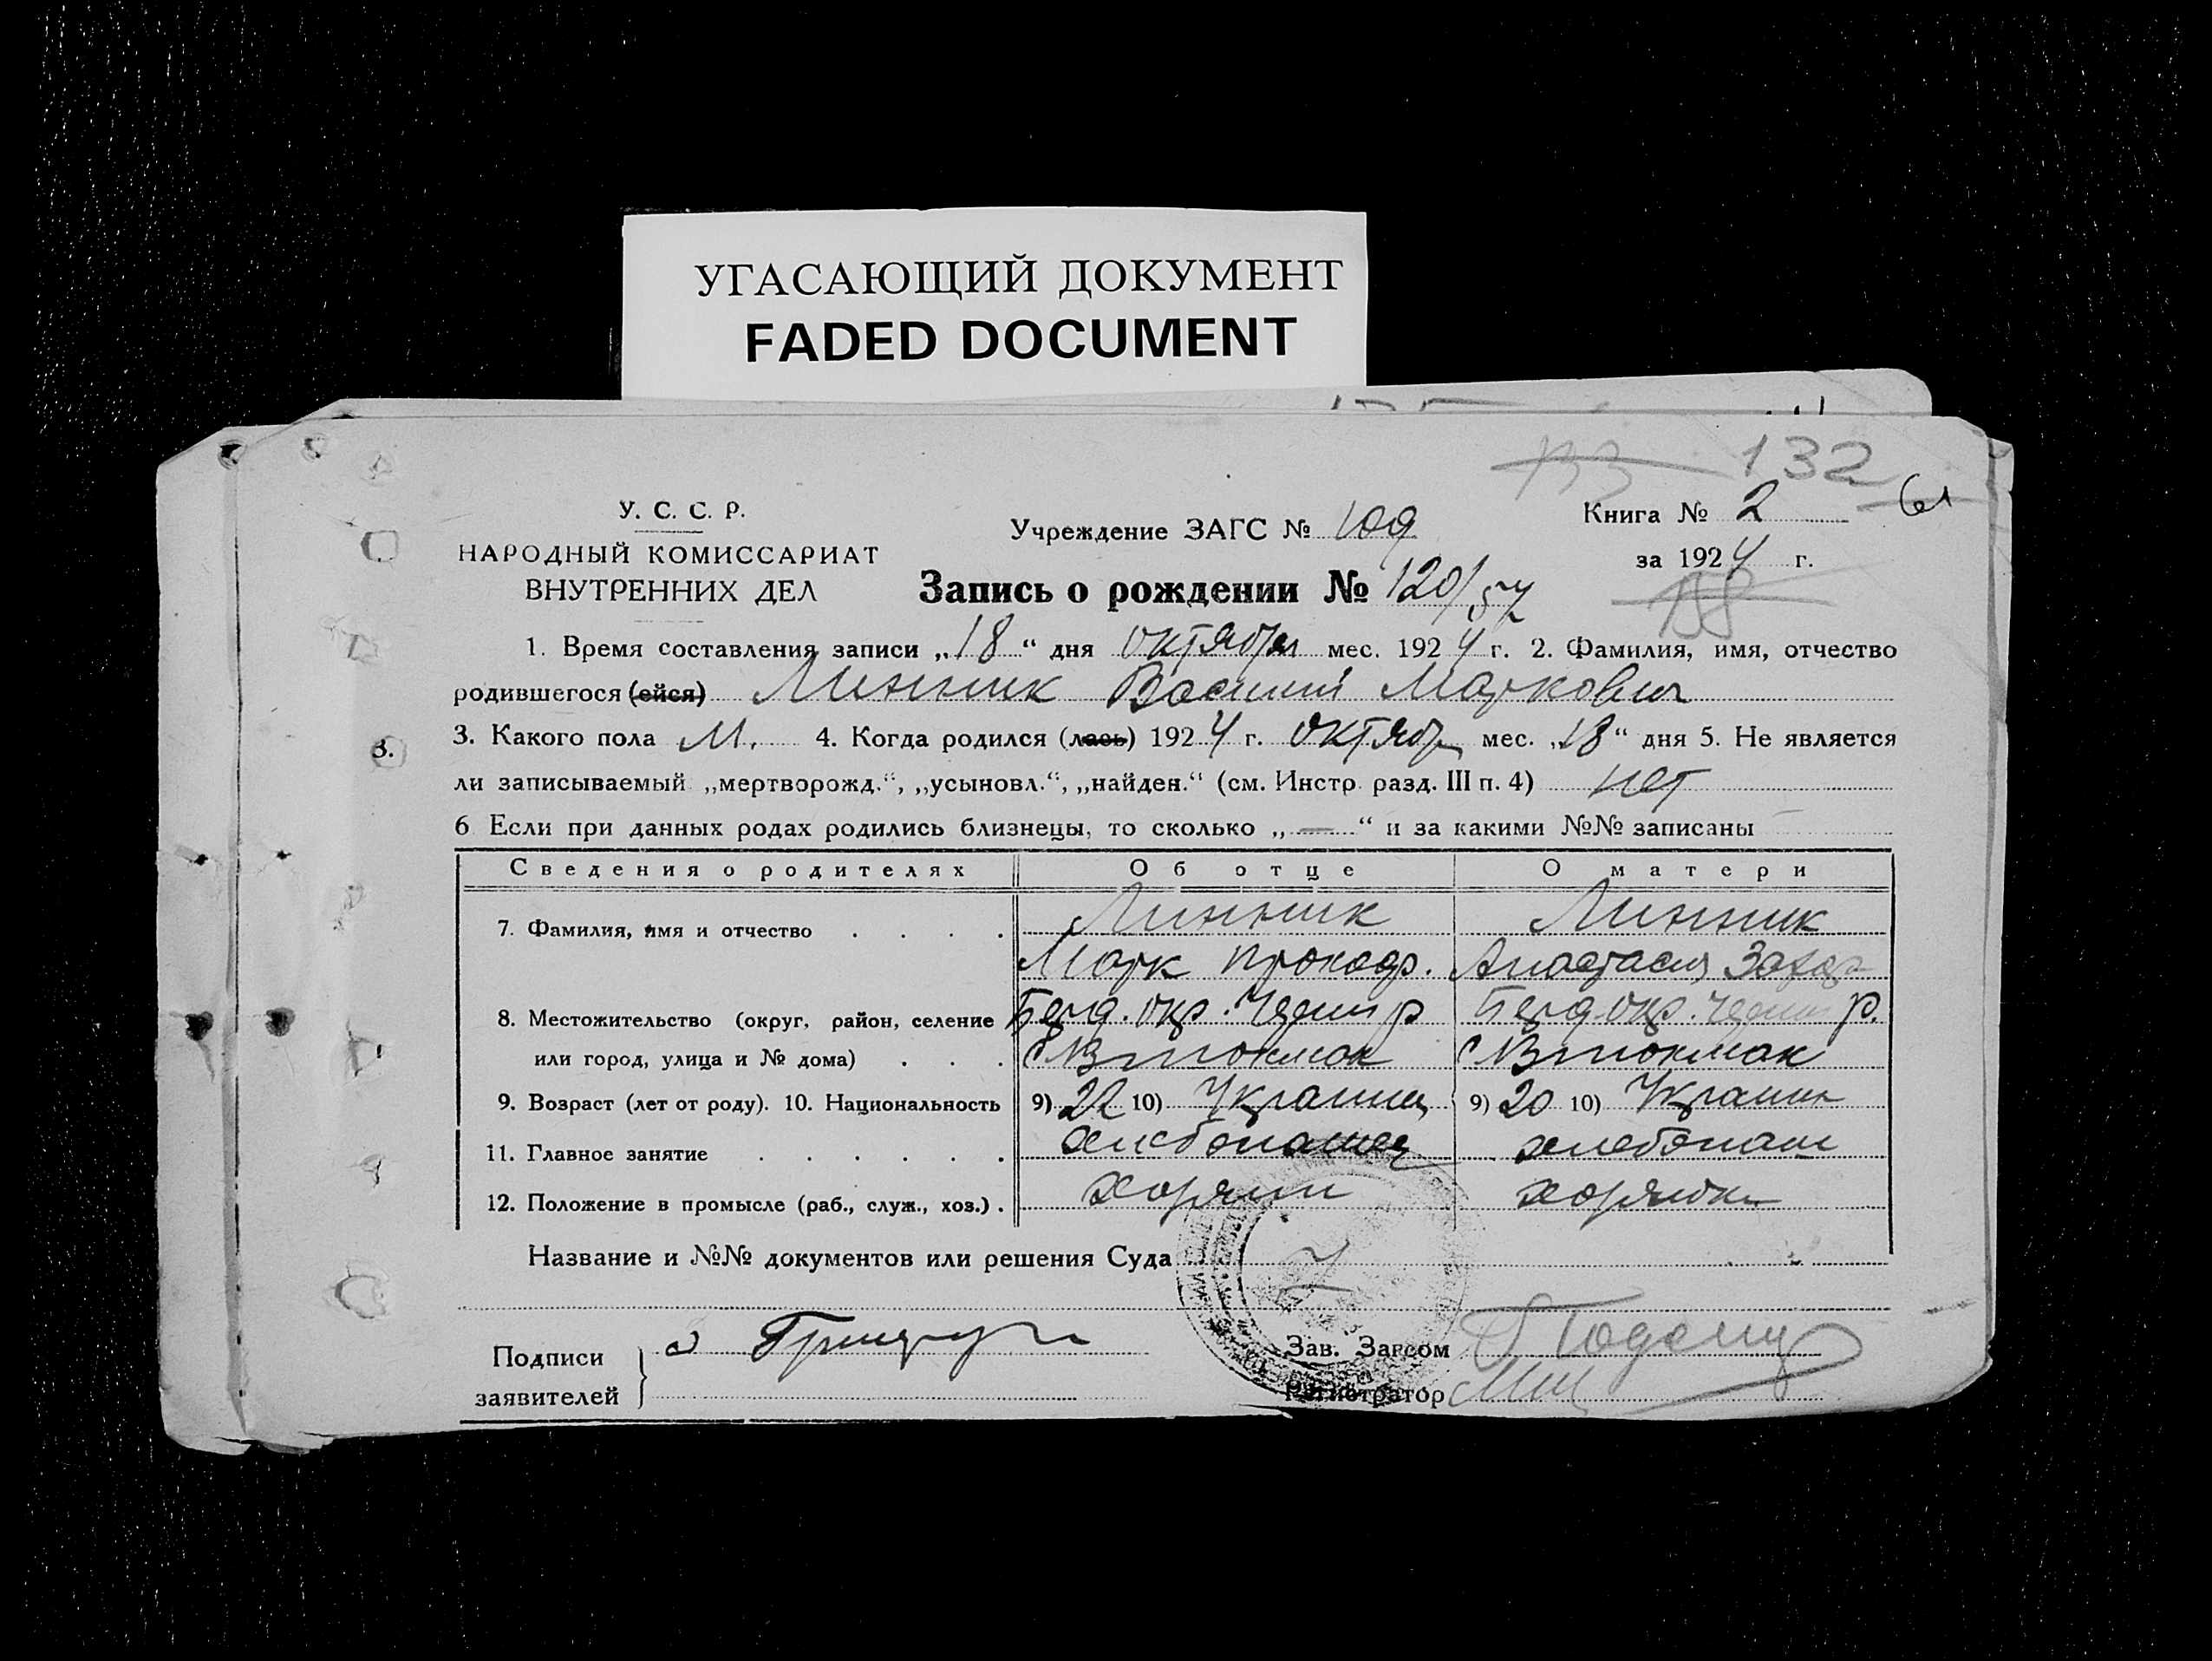 УГАСАЮЩИЙ ДОКУМЕНТ
FADED DOCUMENT
133 132
61
У. С. С. Р.
НАРОДНЫЙ КОМИССАРИАТ
ВНУТРЕННИХ ДЕЛ
Учреждение ЗАГС № 109
Книга № 2
за 1924 г.
Запись о рождении № 120/57
1. Время составления записи „18“ дня октября мес. 1924 г. 2. Фамилия, имя, отчество
родившегося (ейся) Линник Василий Маркович
3. Какого пола М. 4. Когда родился (лась) 1924 г. октяб мес. „18“ дня 5. Не является
ли записываемый „мертворожд.“, „усыновл.“, „найден.“ (см. Инстр. разд. III п. 4) нет
6 Если при данных родах родились близнецы, то сколько „—“ и за какими №№ записаны
Сведения о родителях Об отце О матери
7. Фамилия, имя и отчество Линник Линник
Марк Прокоф. Анастасия Захар
8. Местожительство (округ, район, селение Берд. окр. р Берд. окр. р.
или город, улица и № дома) с В токмак с В токмак
9. Возраст (лет от роду). 10. Национальность 9) 22 10) Украинец 9) 20 10) Украин
11. Главное занятие хлебопашец хлебопаш
12. Положение в промысле (раб., служ., хоз.)
Название и №№ документов или решения Суда
Подписи
заявителей
Зав. Загсом
Регистратор